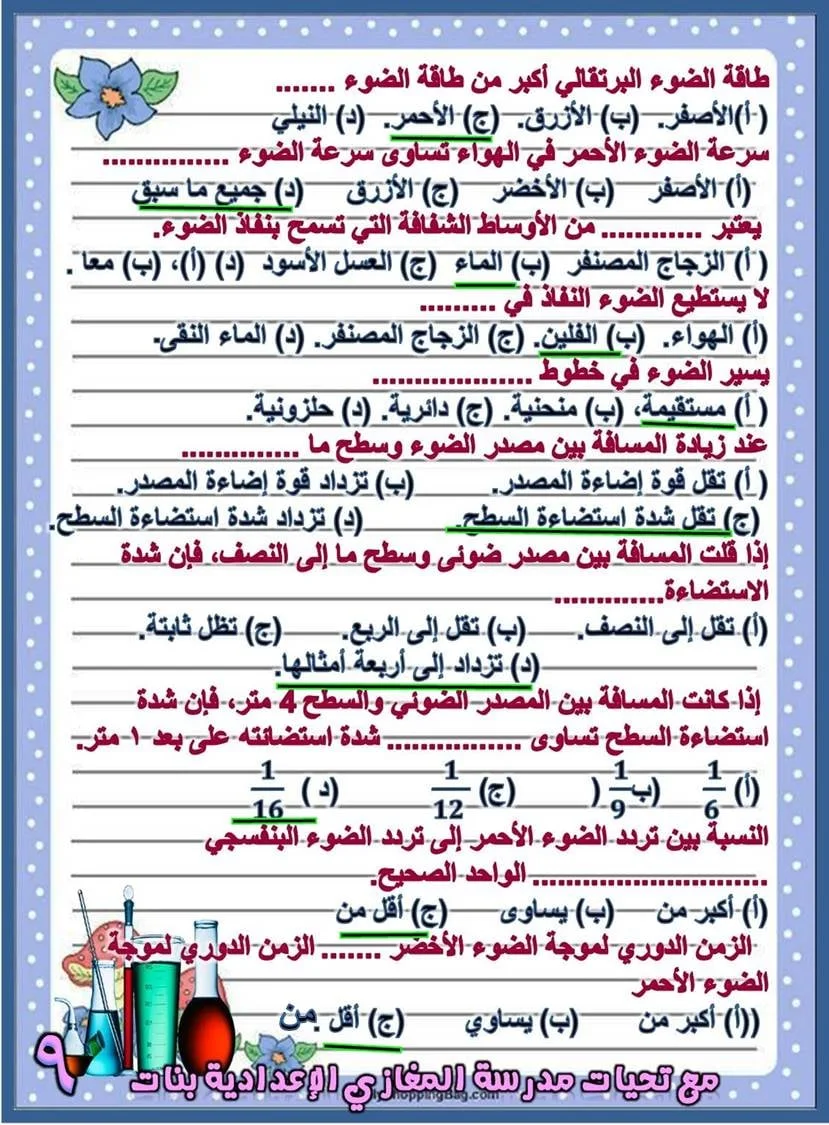 طاقة الضوء البرتقالي أكبر من طاقة الضوء .......
( أ)الأصفر. (ب) الأزرق. (ج) الأحمر. (د) النيلي
سرعة الضوء الأحمر في الهواء تساوى سرعة الضوء ...............
(أ) الأصفر (ب) الأخضر (ج) الأزرق (د) جميع ما سبق
يعتبر ............ من الأوساط الشفافة التي تسمح بنفاذ الضوء.
( أ) الزجاج المصنفر (ب) الماء (ج) العسل الأسود (د) (أ)، (ب) معا .
لا يستطيع الضوء النفاذ في .........
(أ) الهواء. (ب) الفلين. (ج) الزجاج المصنفر. (د) الماء النقى.
يسير الضوء في خطوط ...................
( أ) مستقيمة، (ب) منحنية. (ج) دائرية. (د) حلزونية.
عند زيادة المسافة بين مصدر الضوء وسطح ما ..............
( أ) تقل قوة إضاءة المصدر. (ب) تزداد قوة إضاءة المصدر.
(ج) تقل شدة استضاءة السطح. (د) تزداد شدة استضاءة السطح.
إذا قلت المسافة بين مصدر ضوئى وسطح ما إلى النصف، فإن شدة
الاستضاءة.............
(أ) تقل إلى النصف. (ب) تقل إلى الربع. (ج) تظل ثابتة.
(د) تزداد إلى أربعة أمثالها.
إذا كانت المسافة بين المصدر الضوئي والسطح 4 متر، فإن شدة
استضاءة السطح تساوى ................ شدة استضائته على بعد ١ متر.
(أ) 1/6 (ب 1/9 ( (ج) 1/12 (د ) 1/16
النسبة بين تردد الضوء الأحمر إلى تردد الضوء البنفسجي
............................ الواحد الصحيح.
(أ) أكبر من (ب) يساوى (ج) أقل من
الزمن الدوري لموجة الضوء الأخضر ....... الزمن الدوري لموجة
الضوء الأحمر
((أ) أكبر من (ب) يساوي (ج) أقل .من
مع تحيات مدرسة المغازي الإعدادية بنات
٩